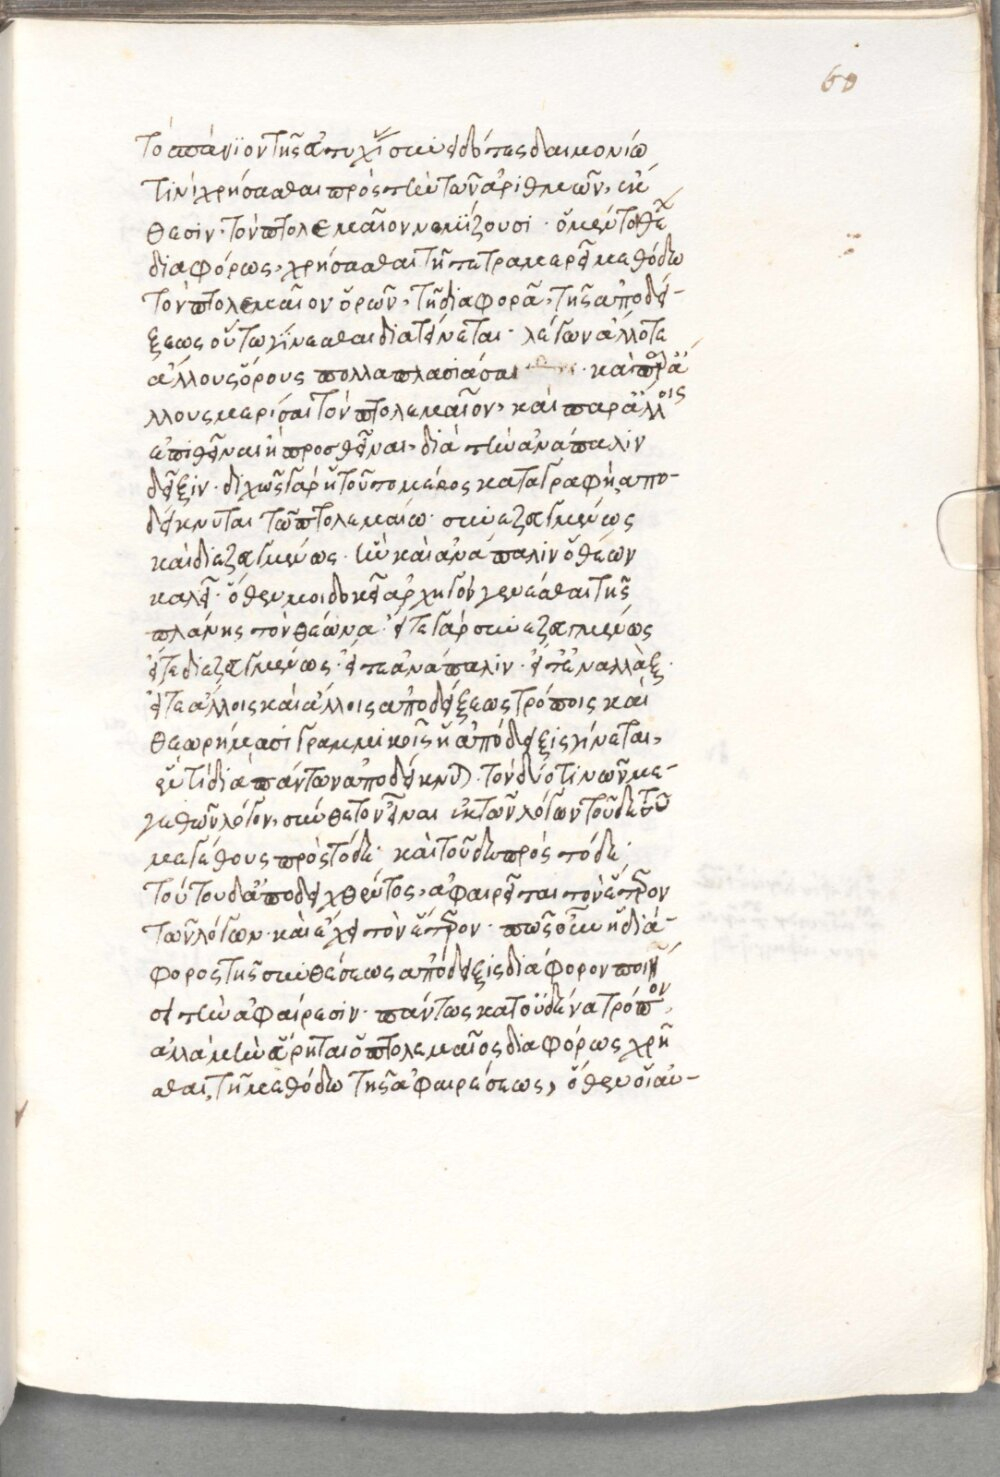 60
τὸ σπάνιον τῆς ψυχῆς συνειδότες δαιμονίω
τινὶ χρήσασθαι πρὸς τὴν τῶν ἀριθμῶν, ἔκ
θεσιν· τὸν πτολεμαῖον νομίζουσι· ὁ μέντοι
διαφόρως, χρήσασθαι τῆ τετραμερεῖ μεθόδω
τὸν πτολεμαῖον ὁρῶν, τῆ διαφορᾶ, τῆς ἀποδεί-
ξεως οὕτω γίνεσθαι διατείνεται· λέγων ἄλλοτε
ἄλλους ὅρους πολλαπλασιάσαι · καὶ παρ' ἄ
λλους μερίσαι τὸν πτολεμαῖον, καὶ παρ' ἄλλοις
ἐπιθεῖναι ἢ προσθεῖναι, διὰ τὴν ἀνάπαλιν
δεῖξιν· διχῶς γὰρ ἢ τοὐπομέρος καταγραφὴ ἀπο-
δείκνυται τῶ πτολεμαίω· συνεζευγμένως
καὶ διεζευγμένως· ἣν καὶ ἀνάπαλιν ὁ θέων
καλεῖ· ὅθεν μοι δοκεῖ ἀρχηγὸν γενέσθαι τῆς
πλάνης τὸν θέωνα· εἴτε γὰρ συνεζευγμένως
εἴτε διεζευγμένως· εἴτε ἀνάπαλιν· εἴτ' ἐναλλὰξ·
εἴτε ἄλλοις καὶ ἄλλοις ἀποδείξεως τρόποις καὶ
θεωρήμασι γραμμικοῖς ἡ ἀπόδειξις γίνεται,
ἕν τι διὰ πάντων ἀποδείκνυται· τὸν δύο τινῶν με-
γεθῶν λόγον, σύνθετον εἶναι ἐκ τῶν λόγων τοῦδε τοῦ
μεγέθους πρὸς τόδε· καὶ τοῦδε πρὸς τόδε·
τούτου δ' ἀποδειχθέντος, ἀφαιρεῖται τὸν ἕτερον
τῶν λόγων· καὶ ἔχει τὸν ἕτερον· πῶς οὖν ἡ διά-
φορος τῆς συνθέσεως ἀπόδειξις διάφορον ποιή
σει τὴν ἀφαίρεσιν· πάντως κατ' οὐδένα τρόπον,
ἀλλὰ μὴν εἴρηται ὁ πτολεμαῖος διαφόρως χρῆ
σθαι, τῆ μεθόδω τῆς ἀφαιρέσεως, ὅθεν οἱ αὐ-